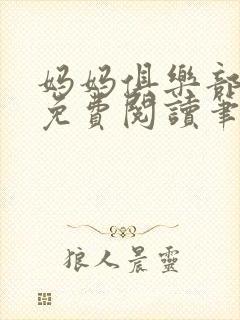 媽媽俱樂部
免費閱讀筆
狼人晨靈